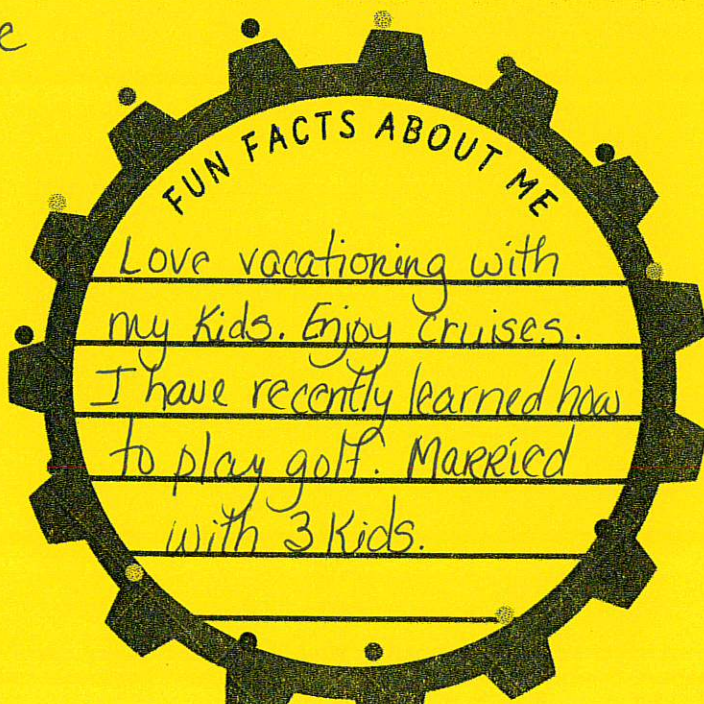 e
FUN FACTS ABOUT ME
Love vacationing with
my Kids. Enjoy Cruises.
I have recently learned how
to play golf. Married
with 3 Kids.